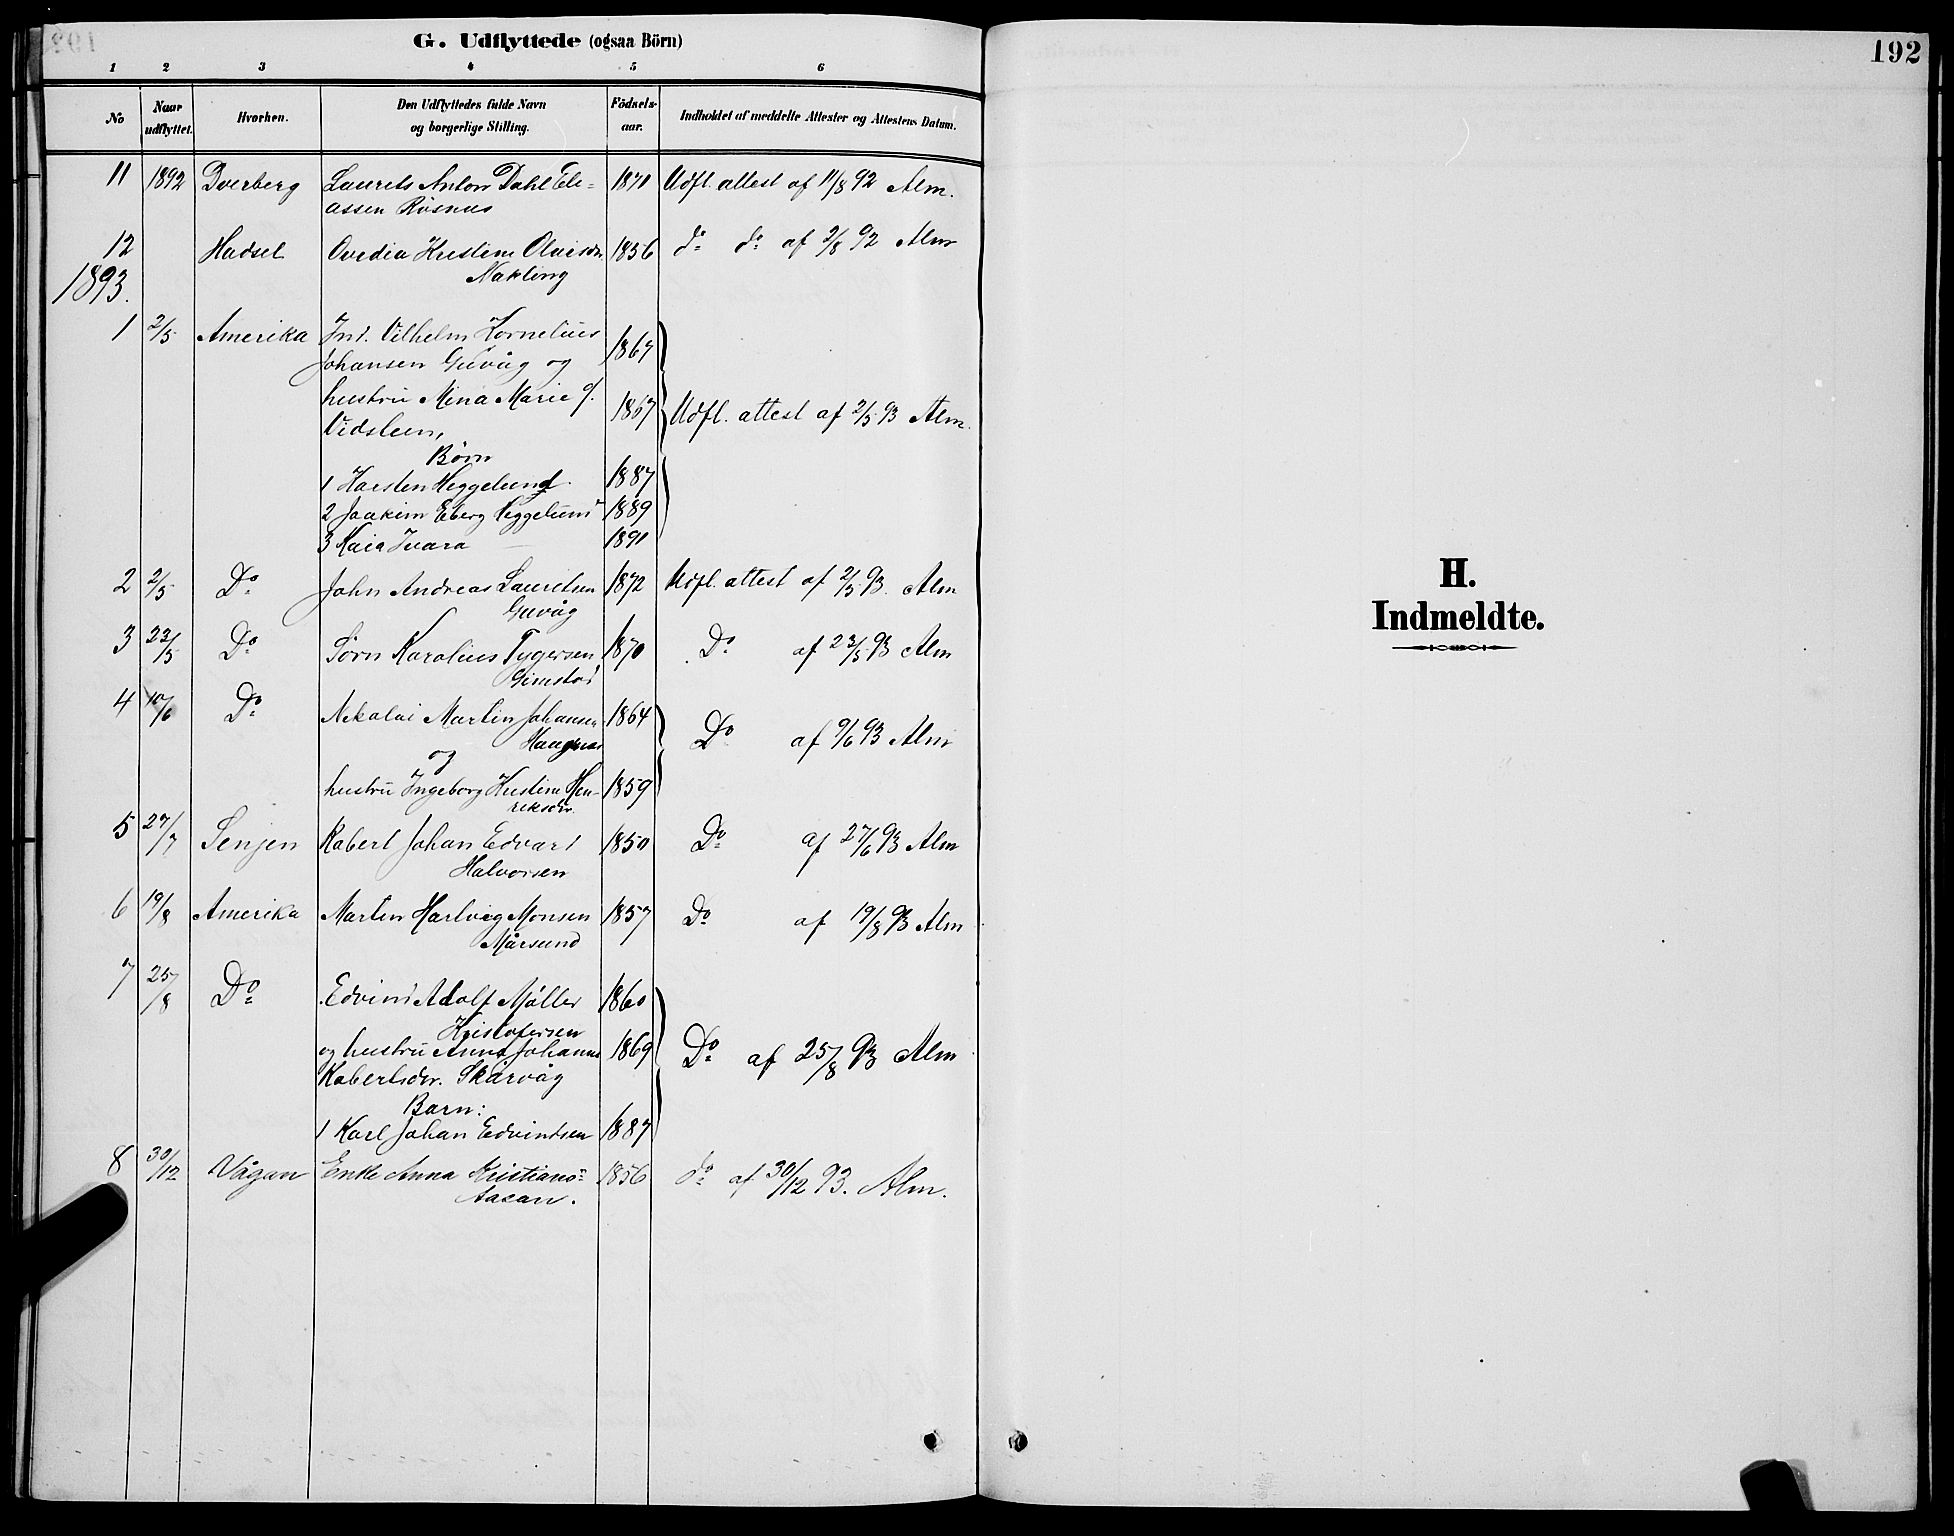 G. Udflyttede (ogsaa Börn)
1 2 3 4 5 6
No Naar udflyttet. Hvorhen. Den Udflyttedes fulde Navn og borgerlige Stilling. Födsels-aar. Indholdet af meddelte Attester og Attestens Datum.
11 1892 Dverberg Laurits Anton Dahl Eli= 1871 Udfl. attest af 11/8 92 Alm.
assen Røsnes
12 Hadsel Ovedia Kristine Olaisdr. 1856 do do af 2/8 92 Alm
Nakling
1893.
1 2/5 Amerika Ind. Vilhelm Kornelius
Johansen Guvåg og 1867
hustru Mina Marie f. 1867 Udfl. attest af 2/5 93 Alm.
Vidsteen,
Børn
1 Karsten Heggelund 1887
2 Joakim Eberg Heggelund 1889
3 Kaia Ivara — 1891
2 2/5 Do John Andreas Lauritsen 1872 Udfl. attest af 2/5 93. Alm
Guvåg
3 23/5 Do Sørn Karolius Tygersen 1870 Do af 23/5 93 Alm
Gimstad
4 10/6 Do Nikolai Martin Johansen 1864
Haugsnes Do af 9/6 93 Alm
og
hustru Ingeborg Kristine Hen- 1859
riksdr.
5 27/7 Senjen Robert Johan Edvard 1850 Do af 27/6 93 Alm
Halvorsen
6 19/8 Amerika Martin Hartvig Monsen 1857 Do af 19/8 93 Alm
Mårsund
7 25/8 Do Edvind Adolf Møller 1860
Kristofersen
og hustru Anna Johanne 1869 Do af 25/8 93 Alm
Robertsdr. Skårvåg
Barn:
1 Karl Johan Edvindsen 1887
8 30/12 Vågan Enke Anna Kristians= 1856 do af 30/12 93. Alm.
Aasan.
192
H.
Indmeldte.